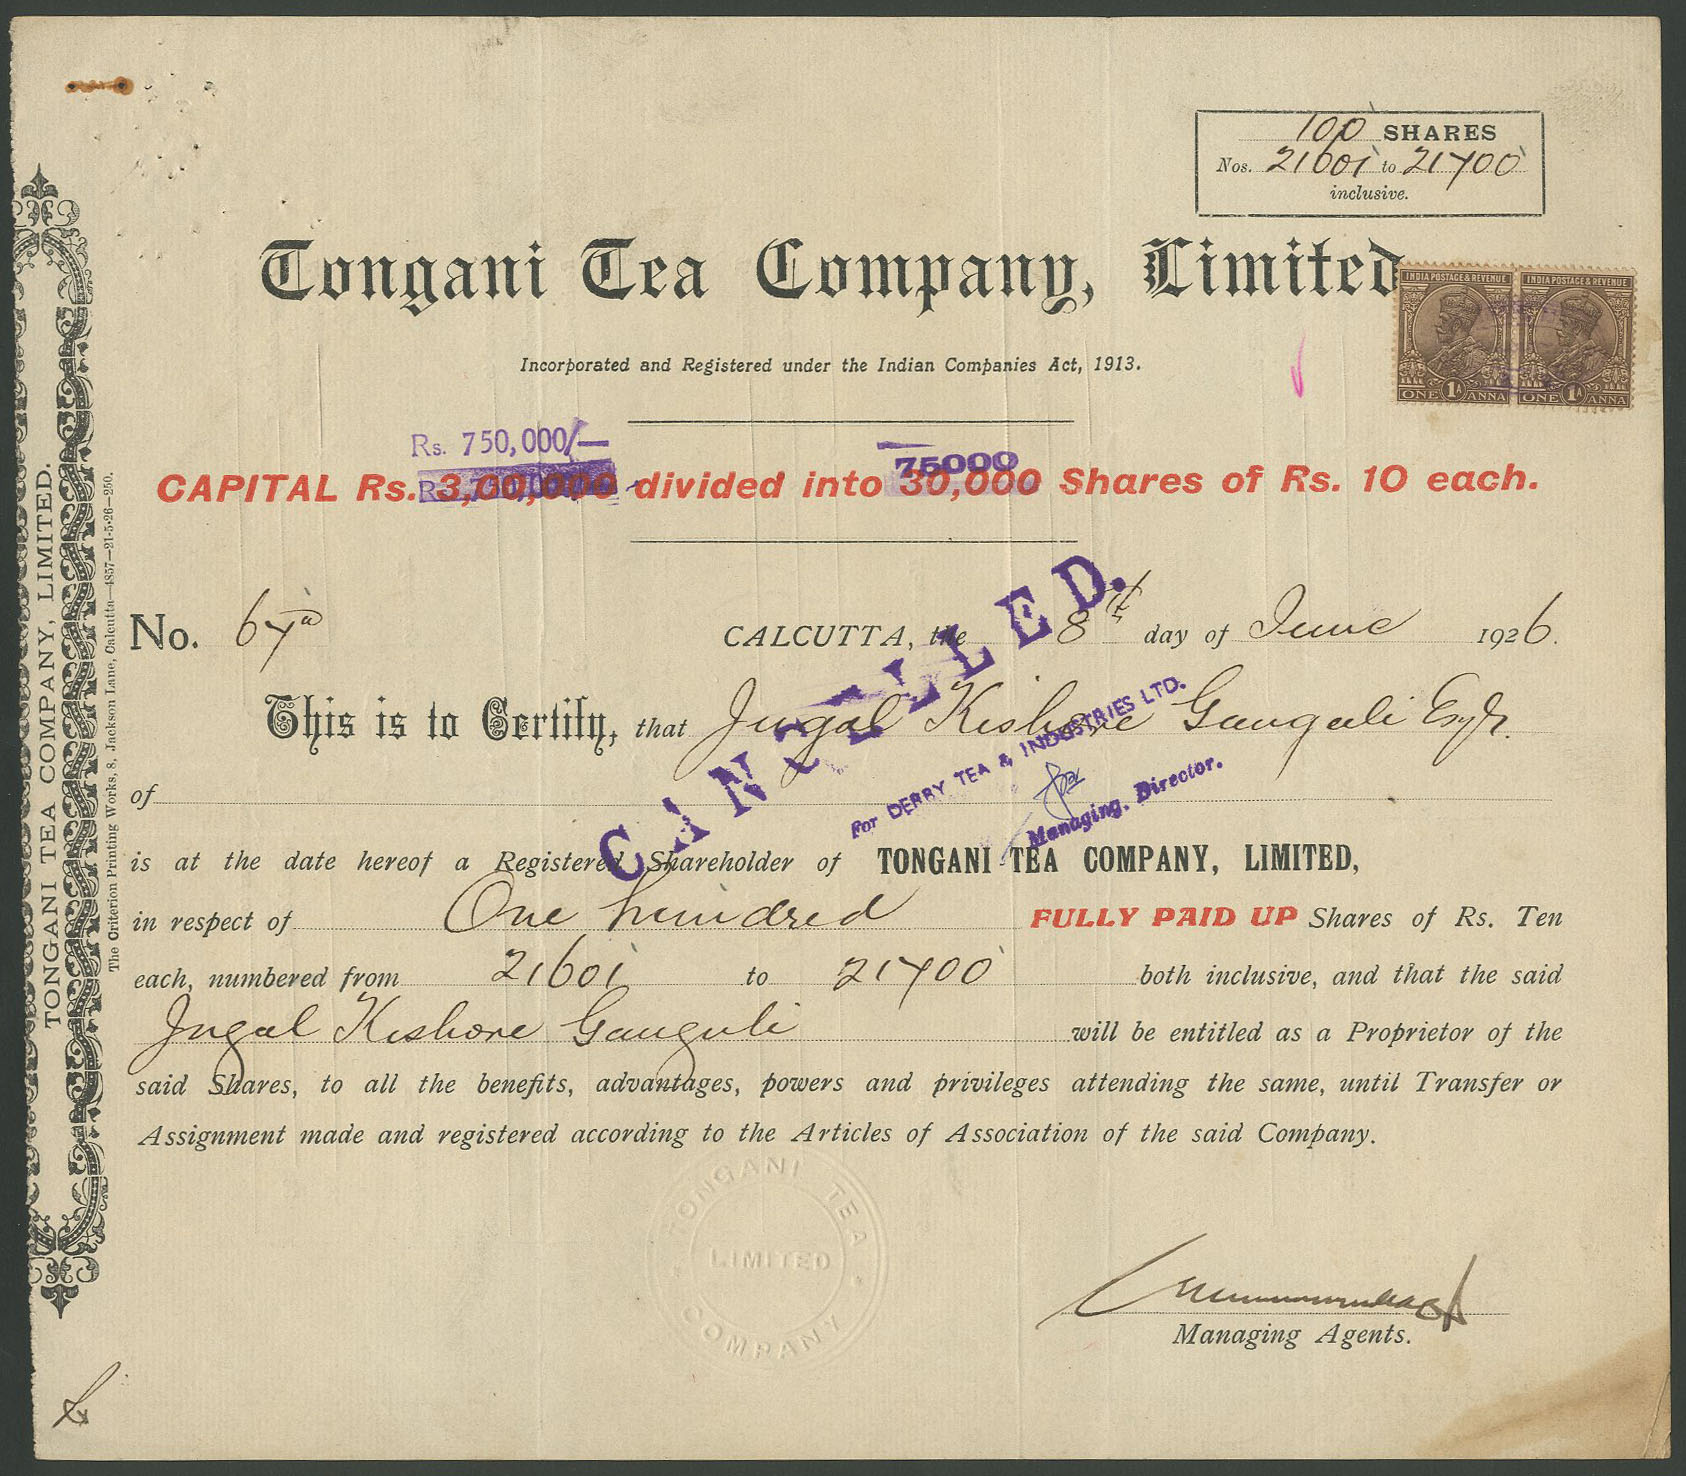 100 SHARES
Nos. 21601 to 21700
inclusive.
Tongani Tea Company, Limited
INDIA POSTAGE & REVENUE
ONE 1A ANNA
INDIA POSTAGE & REVENUE
ONE 1A ANNA
Incorporated and Registered under the Indian Companies Act, 1913.
Rs. 750,000/—
75000
CAPITAL Rs. 3,00,000 divided into 30,000 Shares of Rs. 10 each.
No.
CALCUTTA, the 8th day of June 1926.
This is to Certify, that Jugal Kishore Ganguli Esqr.
of
CANCELLED.
For DERBY TEA & INDUSTRIES LTD.
Managing. Director.
is at the date hereof a Registered Shareholder of TONGANI TEA COMPANY, LIMITED,
in respect of One hundred FULLY PAID UP Shares of Rs. Ten
each, numbered from 21601 to 21700 both inclusive, and that the said
Jugal Kishore Ganguli will be entitled as a Proprietor of the
said Shares, to all the benefits, advantages, powers and privileges attending the same, until Transfer or
Assignment made and registered according to the Articles of Association of the said Company.
TONGANI TEA
LIMITED
COMPANY
Managing Agents.
TONGANI TEA COMPANY, LIMITED. TONGANI TEA COMPANY, LIMITED.
The Criterion Printing Works, 8, Jackson Lane, Calcutta—4857—21-5-26—250.